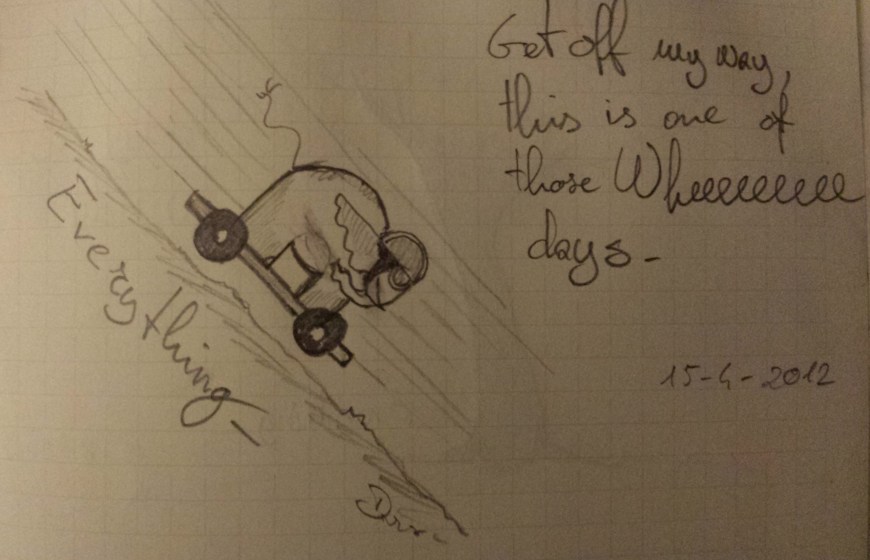 Get off my way,
this is one of
those Wheeeeeeeee
days-
15-4-2012
Everything-